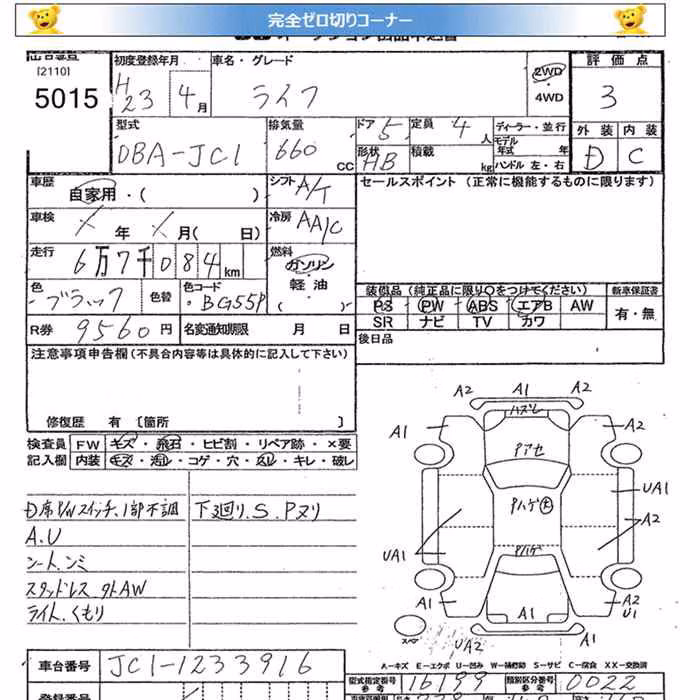 完全ゼロ切りコーナー
[2110]
5015
初度登録年月
H23 4月
車名・グレード
ライフ
2WD
・
4WD
評価点
3
型式
DBA-JC1
排気量
660 CC
ドア 5
定員 4 人
形状 HB
積載 kg
ディーラー・並行
モデル年式 年
ハンドル 左・右
外装 内装
D C
車歴
自家用・( )
シフト A/T
車検
年 月( 日)
冷房 AA/C
走行
6万7千084km
燃料
ガソリン
・
軽油
( )
セールスポイント (正常に機能するものに限ります)
色
ブラック
色替
色コード
BG55P
R券 9560円
名変通知期限 月 日
装備品 (純正品に限り〇をつけてください)
PS PW ABS エアB AW
SR ナビ TV カワ
新車保証書
有・無
後日品
注意事項申告欄(不具合内容等は具体的に記入して下さい)
修復歴 有 [箇所 ]
検査員 FW キズ・飛石・ヒビ割・リペア跡・×要
記入欄 内装 キズ・汚れ・コゲ・穴・スレ・キレ・破レ
D席P/Wスイッチ、1部不調
A.U
シートシミ
スタッドレス 外AW
ライト.くもり
下廻り.S.Pヌリ
A2 A1 A2
ハズレ
A1 A1
Pアセ
Pハゲ
UA1
A2
UA1
Pハゲ
A1
A1
A2
U1
UA2
スペア
A-キズ E-エクボ U-凹み W-補修跡 S-サビ C-腐食 XX-交換済
車台番号 JC1-1233916
型式指定番号 参考 16199
類別区分番号 参考 0022
登録番号